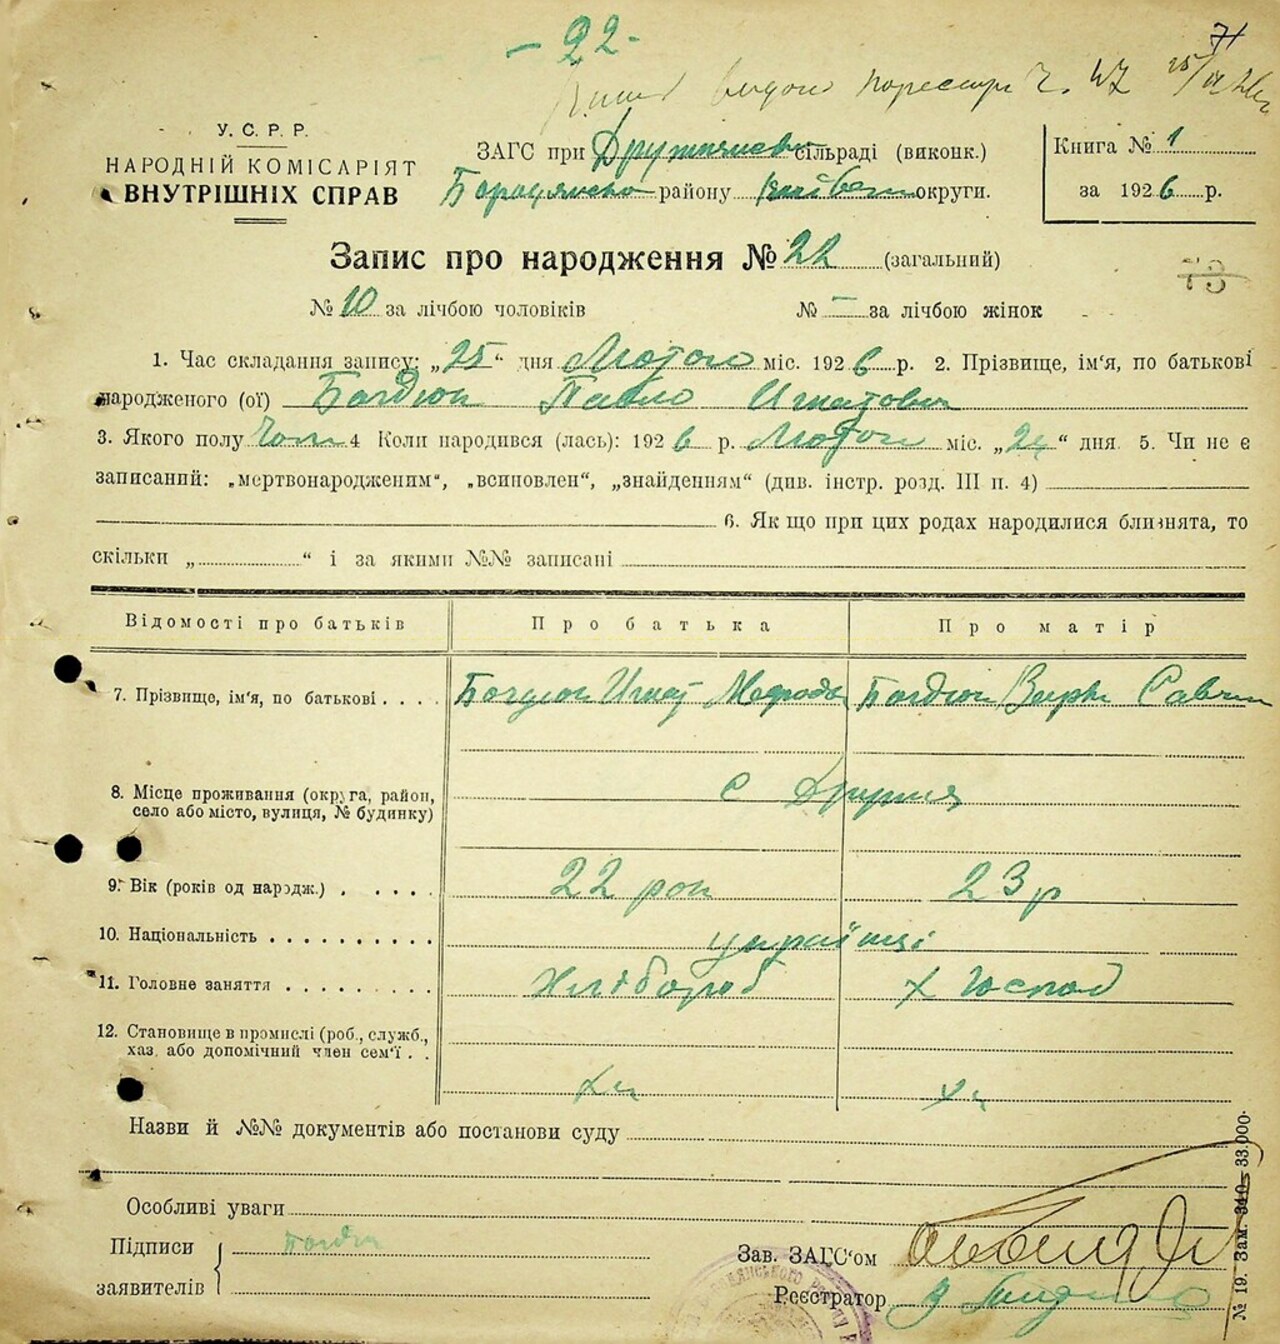 - 22 -
71
У. С. Р. Р.
НАРОДНІЙ КОМІСАРІЯТ
ВНУТРІШНІХ СПРАВ
ЗАГС при сільраді (виконк.)
району округи.
Книга № 1
за 1926 р.
Запис про народження № 22 (загальний)
№ 10 за лічбою чоловіків № — за лічбою жінок
1. Час складання запису: „25“ дня Лютого міс. 1926 р. 2. Прізвище, ім'я, по батькові
народженого (ої) Богдюк Павло Игнатович
3. Якого полу Чол 4 Коли народився (лась): 1926 р. Лютого міс. „24“ дня. 5. Чи не є
записаний: „мертвонародженим“, „всиновлен“, „знайденням“ (див. інстр. розд. III п. 4)
6. Як що при цих родах народилися близнята, то
скільки „ “ і за якими №№ записані
Відомості про батьків Про батька Про матір
7. Прізвище, ім'я, по батькові . . . . Богдюк Игнат Богдюк
8. Місце проживання (округа, район,
село або місто, вулиця, № будинку) с Дружня
9. Вік (років од народж.) . . . . . 22 рок 23 р
10. Національність . . . . . . . . . . українці
11. Головне заняття . . . . . . . . . Хлібороб Х Господ
12. Становище в промислі (роб., служб.,
хаз. або допомічний член сем'ї . .
Назви й №№ документів або постанови суду
Особливі уваги
Підписи
заявителів
Зав. ЗАГС'ом
Реєстратор
№ 19. Зам. 340—33.000.